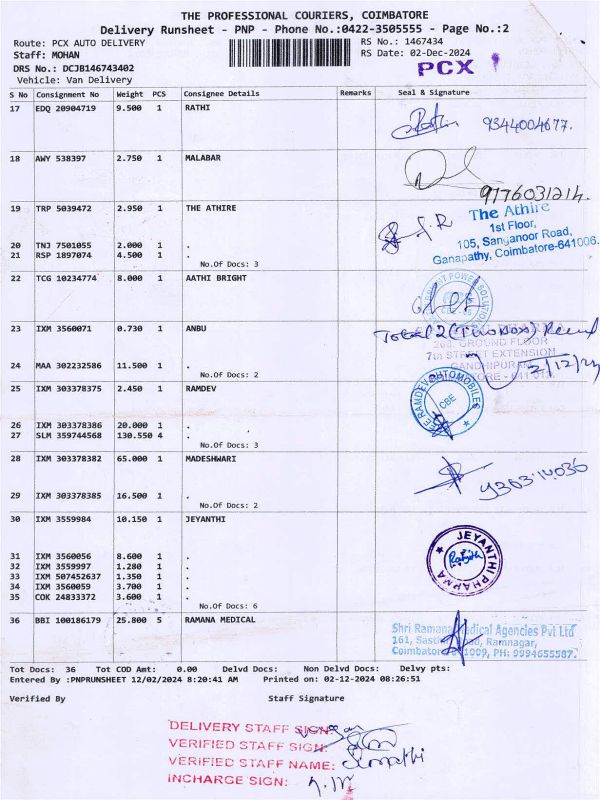 THE PROFESSIONAL COURIERS, COIMBATORE
Delivery Runsheet - PNP - Phone No.:0422-3505555 - Page No.:2
Route: PCX AUTO DELIVERY RS No.: 1467434
Staff: MOHAN RS Date: 02-Dec-2024
DRS No.: DCJB146743402 PCX
Vehicle: Van Delivery
S No Consignment No Weight PCS Consignee Details Remarks Seal & Signature
17 EDQ 20904719 9.500 1 RATHI
9344004677.
18 AWY 538397 2.750 1 MALABAR
9176031214.
19 TRP 5039472 2.950 1 THE ATHIRE
The Athire
1st Floor,
105, Sanganoor Road,
Ganapathy, Coimbatore-641006.
20 TNJ 7501055 2.000 1 .
21 RSP 1897074 4.500 1 .
No.Of Docs: 3
22 TCG 10234774 8.000 1 AATHI BRIGHT
23 IXM 3560071 0.730 1 ANBU
Total 2 (Two Box) Recd
GROUND FLOOR
7th STREET EXTENSION
GANDHIPURAM
2/12/24
24 MAA 302232586 11.500 1 .
No.Of Docs: 2
25 IXM 303378375 2.450 1 RAMDEV
RAMDEV AUTOMOBILES
CBE
26 IXM 303378386 20.000 1 .
27 SLM 359744568 130.550 4 .
No.Of Docs: 3
28 IXM 303378382 65.000 1 MADESHWARI
29 IXM 303378385 16.500 1 .
No.Of Docs: 2
30 IXM 3559984 10.150 1 JEYANTHI
JEYANTHI PHARMA
31 IXM 3560056 8.600 1 .
32 IXM 3559997 1.280 1 .
33 IXM 507452637 1.350 1 .
34 IXM 3560059 3.700 1 .
35 COK 24833372 3.600 1 .
No.Of Docs: 6
36 BBI 100186179 25.800 5 RAMANA MEDICAL
Shri Ramana Medical Agencies Pvt Ltd
161, Road, Ramnagar,
Coimbatore 1009, PH: 9994655587.
Tot Docs: 36 Tot COD Amt: 0.00 Delvd Docs: Non Delvd Docs: Delvy pts:
Entered By :PNPRUNSHEET 12/02/2024 8:20:41 AM Printed on: 02-12-2024 08:26:51
Verified By Staff Signature
DELIVERY STAFF SIGN:
VERIFIED STAFF SIGN:
VERIFIED STAFF NAME:
INCHARGE SIGN: